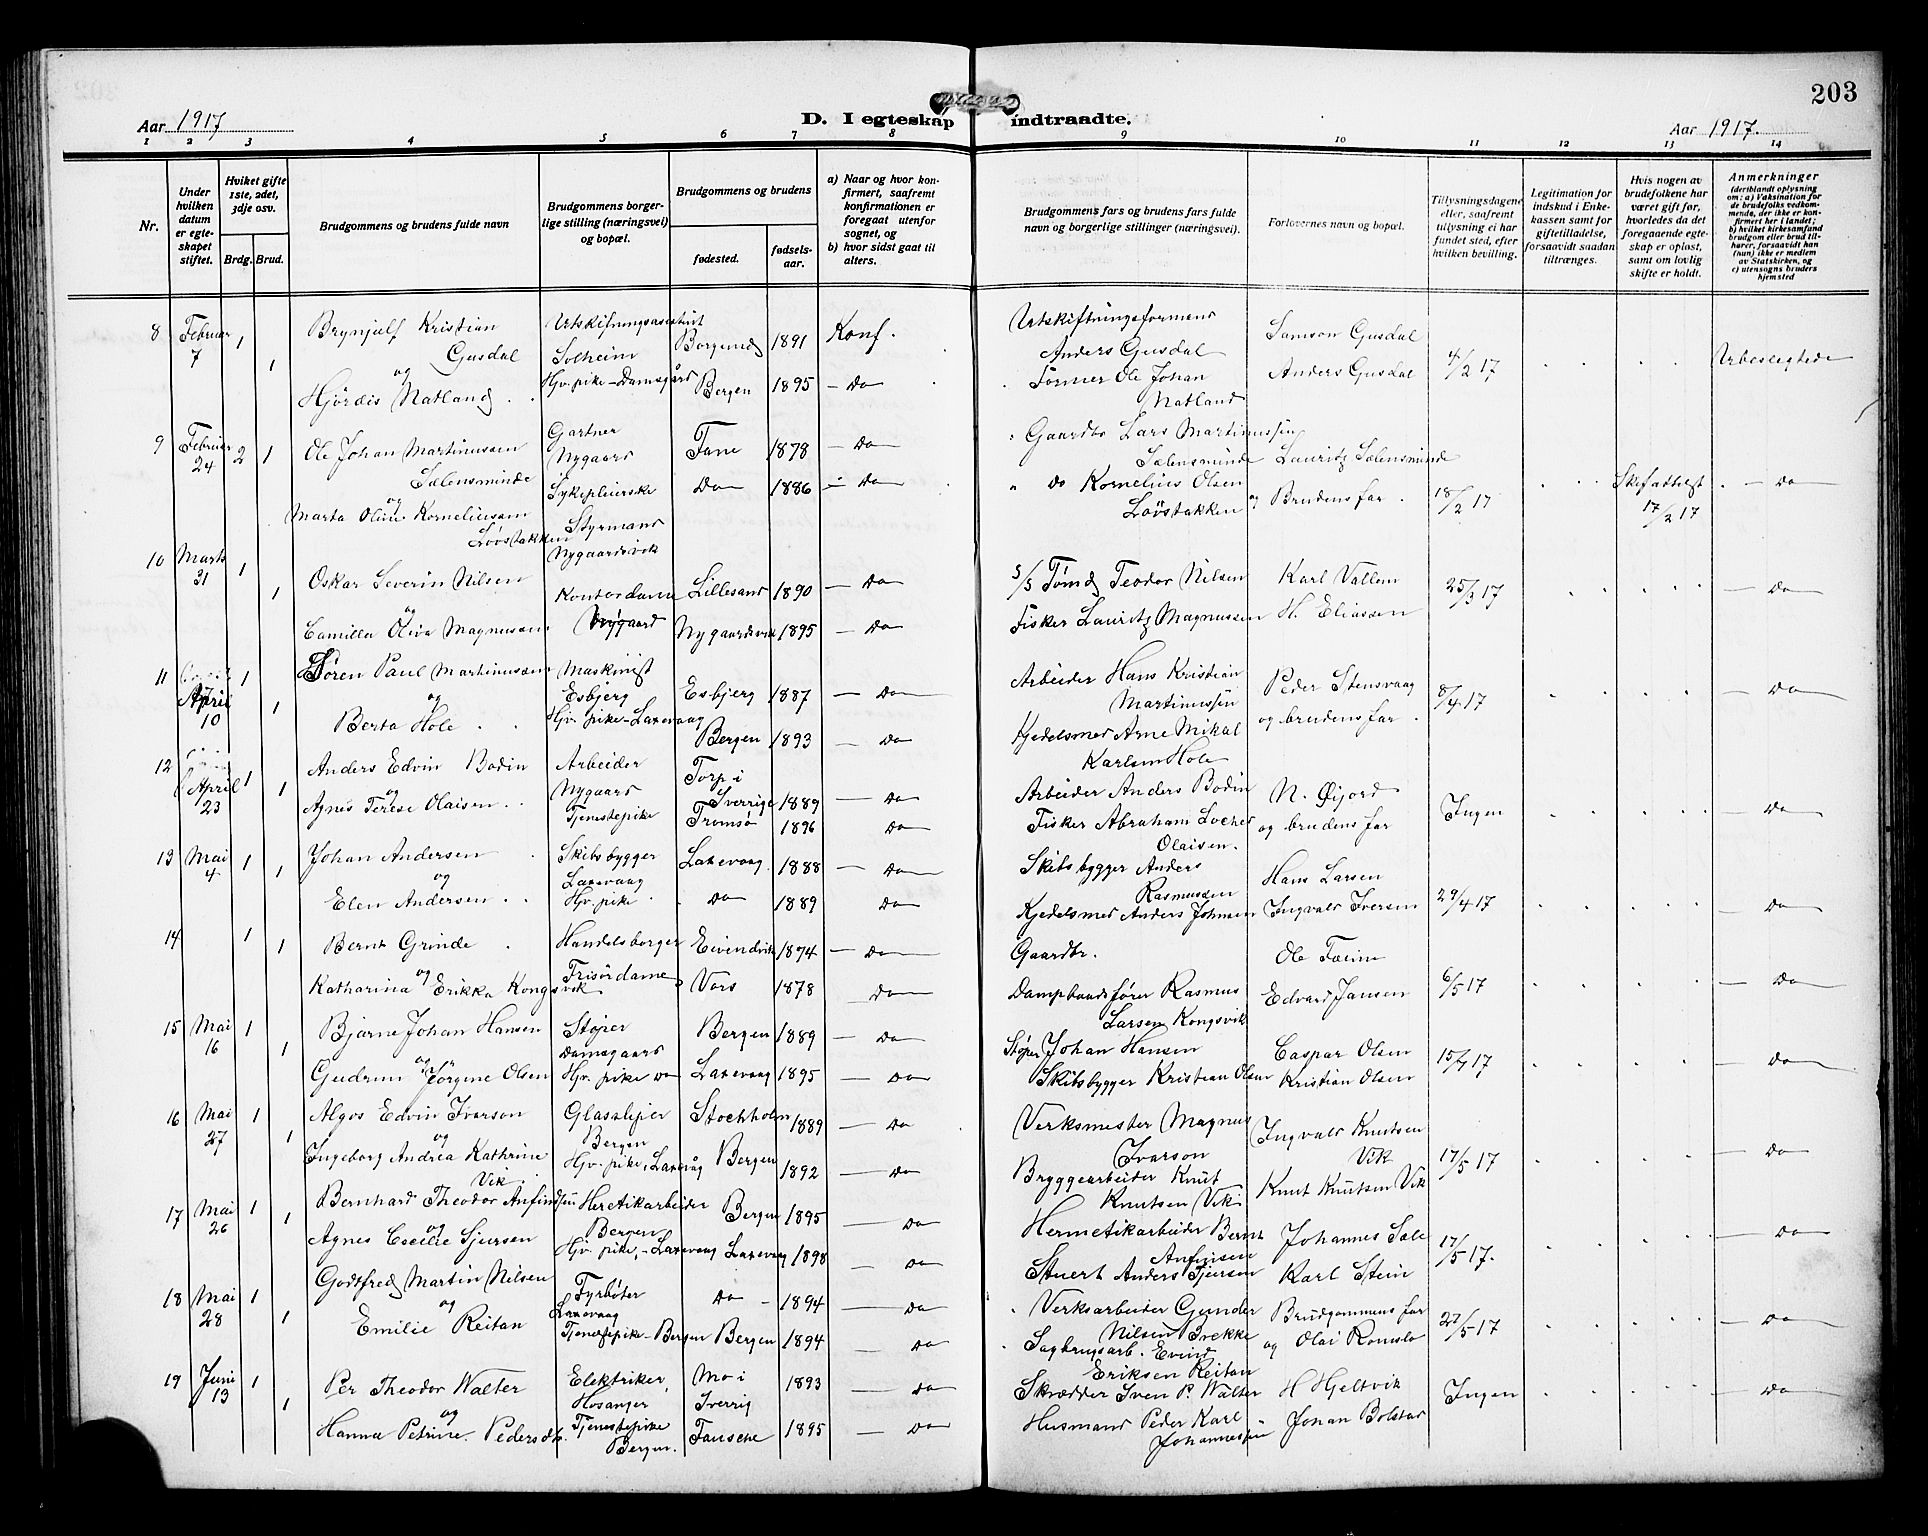 203
Aar 1917
D. I egteskap indtraadte.
Aar 1917.
1 2 3 4 5 6 7 8 9 10 11 12 13 14
Nr.
Under hvilken datum er egteskapet stiftet.
Hviket gifte 1ste, 2det, 3dje osv.
Brdg. Brud.
Brudgommens og brudens fulde navn
Brudgommens borgerlige stilling (næringsvei) og bopæl.
Brudgommens og brudens
fødested.
fødselsaar.
a) Naar og hvor konfirmert, saafremt konfirmationen er foregaat utenfor sognet, og
b) hvor sidst gaat til alters.
Brudgommens fars og brudens fars fulde navn og borgerlige stillinger (næringsvei).
Forlovernes navn og bopæl.
Tillysningsdagene eller, saafremt tillysning ei har fundet sted, efter hvilken bevilling.
Legitimation for indskud i Enkekassen samt for giftetilladelse, forsaavidt saadan tiltrænges.
Hvis nogen av brudefolkene har været gift før, hvorledes da det foregaaende egteskap er opløst, samt om lovlig skifte er holdt.
Anmerkninger
(deriblandt oplysning om: a) Vaksination for de brudefolks vedkommende, der ikke er konfirmert her i landet; b) hvilket kirkesamfund brudgom eller brud tilhører, forsaavidt han (hun) ikke er medlem av Statskirken, og c) utensogns bruders hjemsted
8 Februar 7 1 1
Brynjulf Kristian Gusdal
og
Hjørdis Natland
Utskiftningsassistent
Solheim
Hjv. pike - Damsgård
Borgund 1891 Konf.
Bergen 1895 - Do
Utskiftningsformand
Anders Gusdal
Former Ole Johan
Natland
Samson Gusdal
Anders Gusdal
4/2 17
Ubeslegtede
9 Februar 24 2 1
Ole Johan Martinussen
Sælensminde
og
Marta Oline Korneliussen
Løvstakken
Gartner
Nygaard
Sykepleierske
Fane 1878 - Do
Do 1886 - Do
Gaardbr Lars Martinussen
Sælensminde
Do Kornelius Olsen
Løvstakken
Lauritz Sælensminde
og Brudens far.
18/2 17
Skifteattest
17/2 17
- Do
10 Marts 31 1 1
Oskar Severin Nilsen
og
Camilla Oliva Magnussen
Styrmand
Nygaardsvik
Kontordame
Nygaard
Lillesand 1890 - Do
Nygaardsvik 1895 - Do
Tømd Teodor Nilsen
Fisker Lauritz Magnussen
Karl Vallem
H. Eliassen
25/3 17
- Do
11 April 10 1 1
Søren Paul Martinussen
og
Berta Hole
Maskinist
Esbjerg
Hjv. pike - Laxevaag
Esbjerg 1887 - Do
Bergen 1893 - Do
Arbeider Hans Kristian
Martinussen
Kjedelsmed Arne Mikal
Karlsen Hole
Peder Stensvaag
og brudens far.
8/4 17
- Do
12 April 23 1 1
Anders Edvin Bodin
og
Agnes Terese Olaisen
Arbeider
Nygaard
Tjenestepike
Torp i
Sverrige 1889 - Do
Tromsø 1896 Do
Arbeider Anders Bodin
Fisker Abraham Locher
Olaisen.
N. Øijord
og brudens far
Ingen
- Do
13 Mai 4 1 1
Johan Andersen
og
Elen Andersen
Skibsbygger
Laxevaag
Hjv. pike
Laxevaag 1888 - Do
Do 1889 Do
Skibsbygger Anders
Rasmussen
Kjedelsmed Anders Johnsen
Hans Larsen
Ingvald Iversen
29/4 17
- Do
14 1 1
Bernt Grinde
og
Katharina Erikka Kongsvik
Handelsborger
Frisørdame
Eivendvik 1874 - Do
Vors 1878 Do
Gaardbr.
Dampbaadsfører Rasmus
Larsen Kongsvik
Ole Faim
Edvard Jansen
6/5 17
- Do
15 Mai 16 1 1
Bjarne Johan Hansen
og
Gudrun Jørgine Olsen
Støper
Damsgaard
Hjv. pike Do
Bergen 1889 - Do
Laxevaag 1895 - Do
Støper Johan Hansen
Skibsbygger Kristian Olsen
Caspar Olsen
Kristian Olsen
15/4 17
Do
16 Mai 27 1 1
Algos Edvin Ivarson
og
Ingeborg Andrea Kathrine
Vik
Glassliper
Bergen
Hjv. pike, Laxevåg
Stockholm 1889 - Do
Bergen 1892 - Do
Verksmester Magnus
Ivarson
Bryggearbeider Knut
Knutsen Vik
Ingvald Knutsen
Vik
Knut Knutsen Vik
17/5 17
- Do
17 Mai 26 1 1
Bernhard Theodor Anfindsen
og
Agnes Cecilie Sjursen
Hermetikarbeider
Bergen
Hjv. pike, - Laxevaag
Bergen 1895 - Do
Laxevaag 1898 - Do
Hermetikarbeider Bernt
Anfinsen
Stuert Anders Sjursen
Johannes Sale
Karl Stein
17/5 17.
- Do
18 Mai 28 1 1
Godtfred Martin Nilsen
og
Emilie Reitan
Fyrbøter
Laxevaag
Tjenestepike - Bergen
Do 1894 - Do
Bergen 1894 - Do
Verksarbeider Gunder
Nilsen Brekke
Sagbrugsarb. Evind
Eriksen Reitan
Brudgommens far
og Olai Romslo
27/5 17
- Do
19 Juni 13 1 1
Per Theodor Walter
og
Hanna Petrine Pedersdt.
Elektriker,
Hosanger
Tjenestepike
Bergen.
Mo i
Sverrig 1893 - Do
Fauske 1895 - Do
Skrædder Sven P. Walter
Husmand Peder Karl
Johannessen
H Hjeltvik
Johan Bolstad
Ingen
- Do